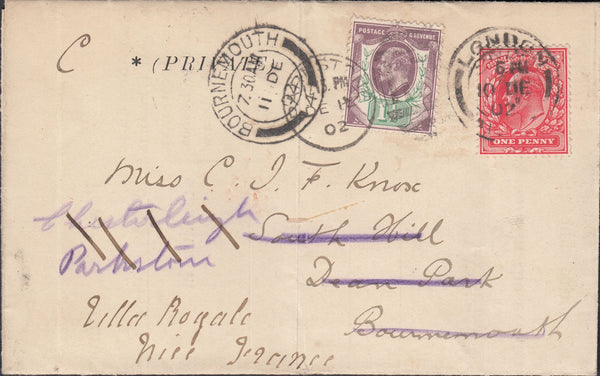 C * (PRIVATE
BOURNEMOUTH
7.30 AM
11 DE
PM
02
POSTAGE & REVENUE
LONDON
10 DE
02
ONE PENNY
Miss C. J. F. Knox
Chesterleigh
South Hill
Parkstone
Dean Park
Villa Royale
Bournemouth
Nice France